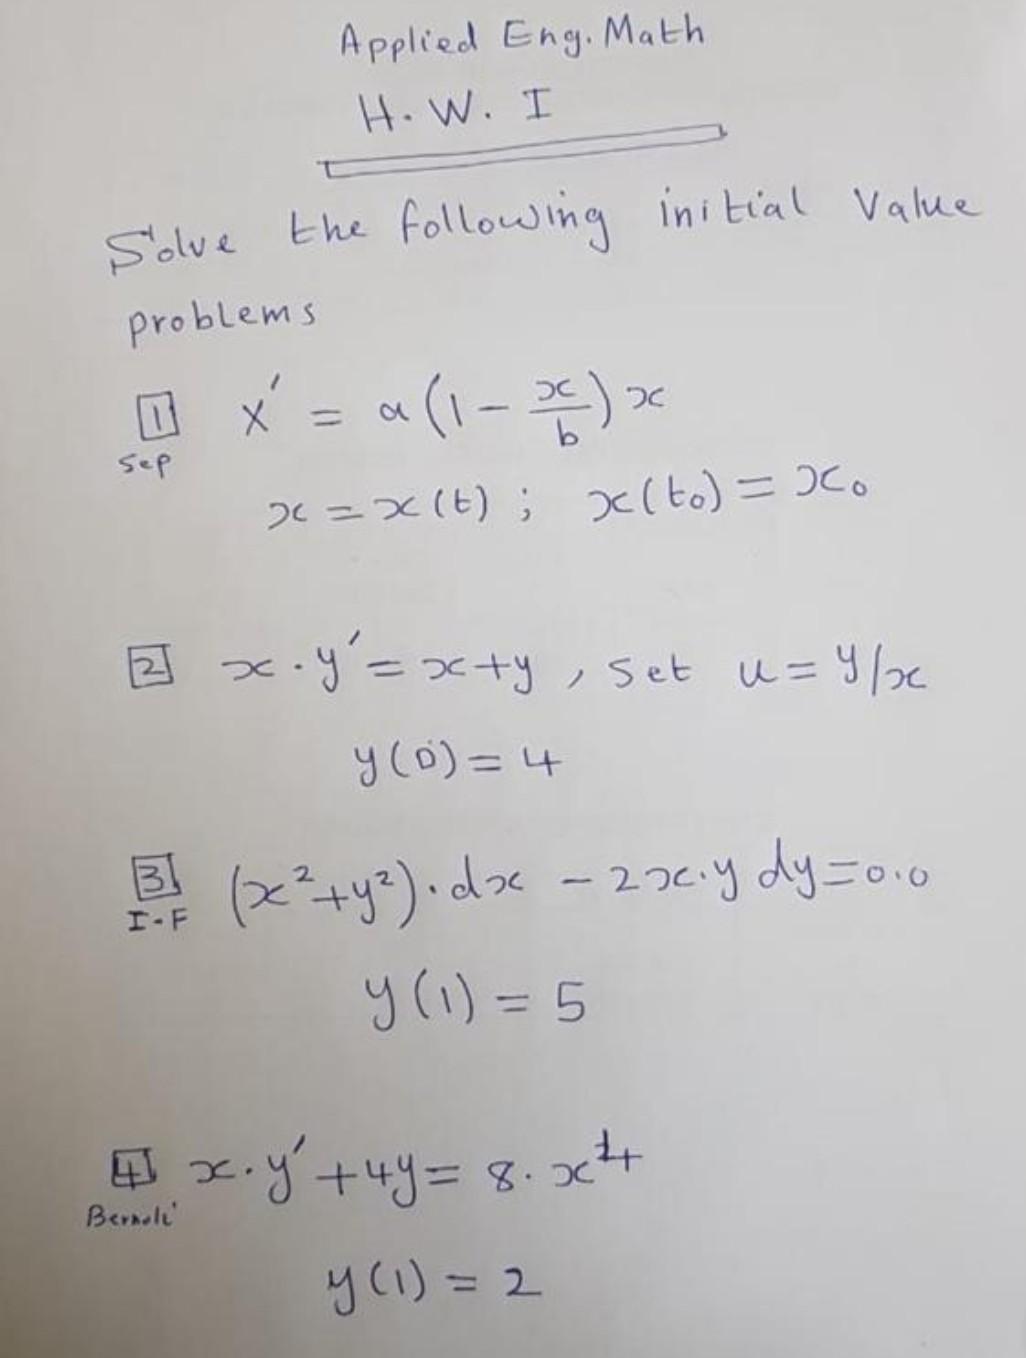 Applied Eng. Math
H. W. I
Solve the following initial value
problems
1 x' = a(1 - x/b) x
Sep
x = x(t) ; x(t₀) = x₀
2 x · y' = x + y , set u = y/x
y(0) = 4
3 (x² + y²) · dx - 2x·y dy = 0.0
I-F
y(1) = 5
4 x · y' + 4y = 8 · x⁴
Bernoli
y(1) = 2